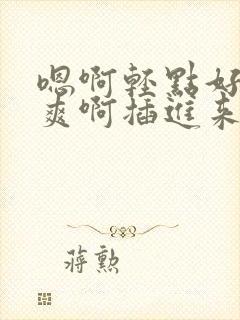 嗯啊輕點好
爽啊插進來
蔣勲